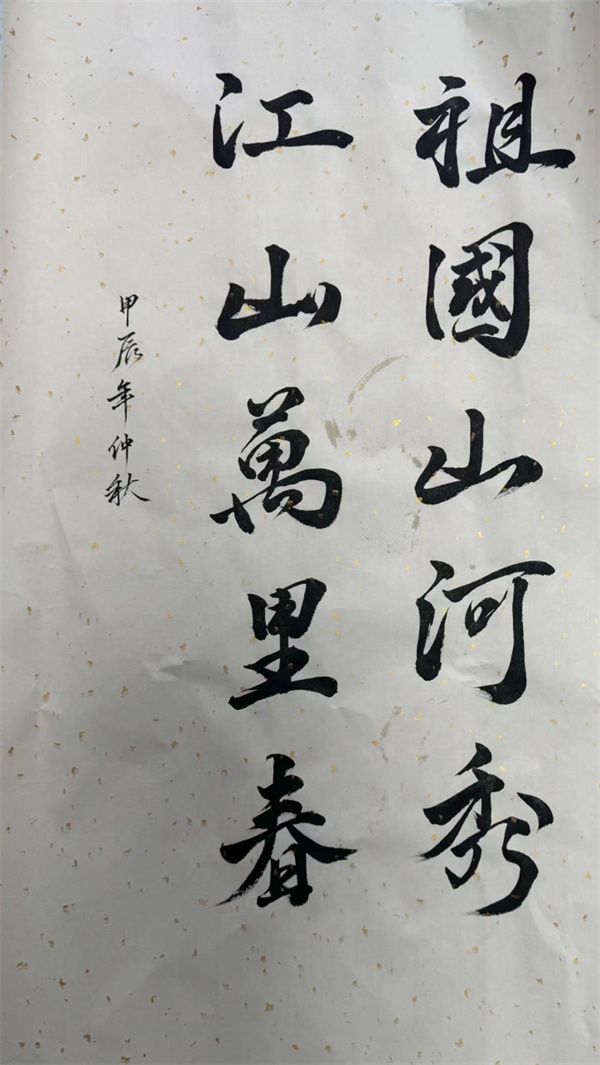 祖國山河秀
江山萬里春
甲辰年仲秋